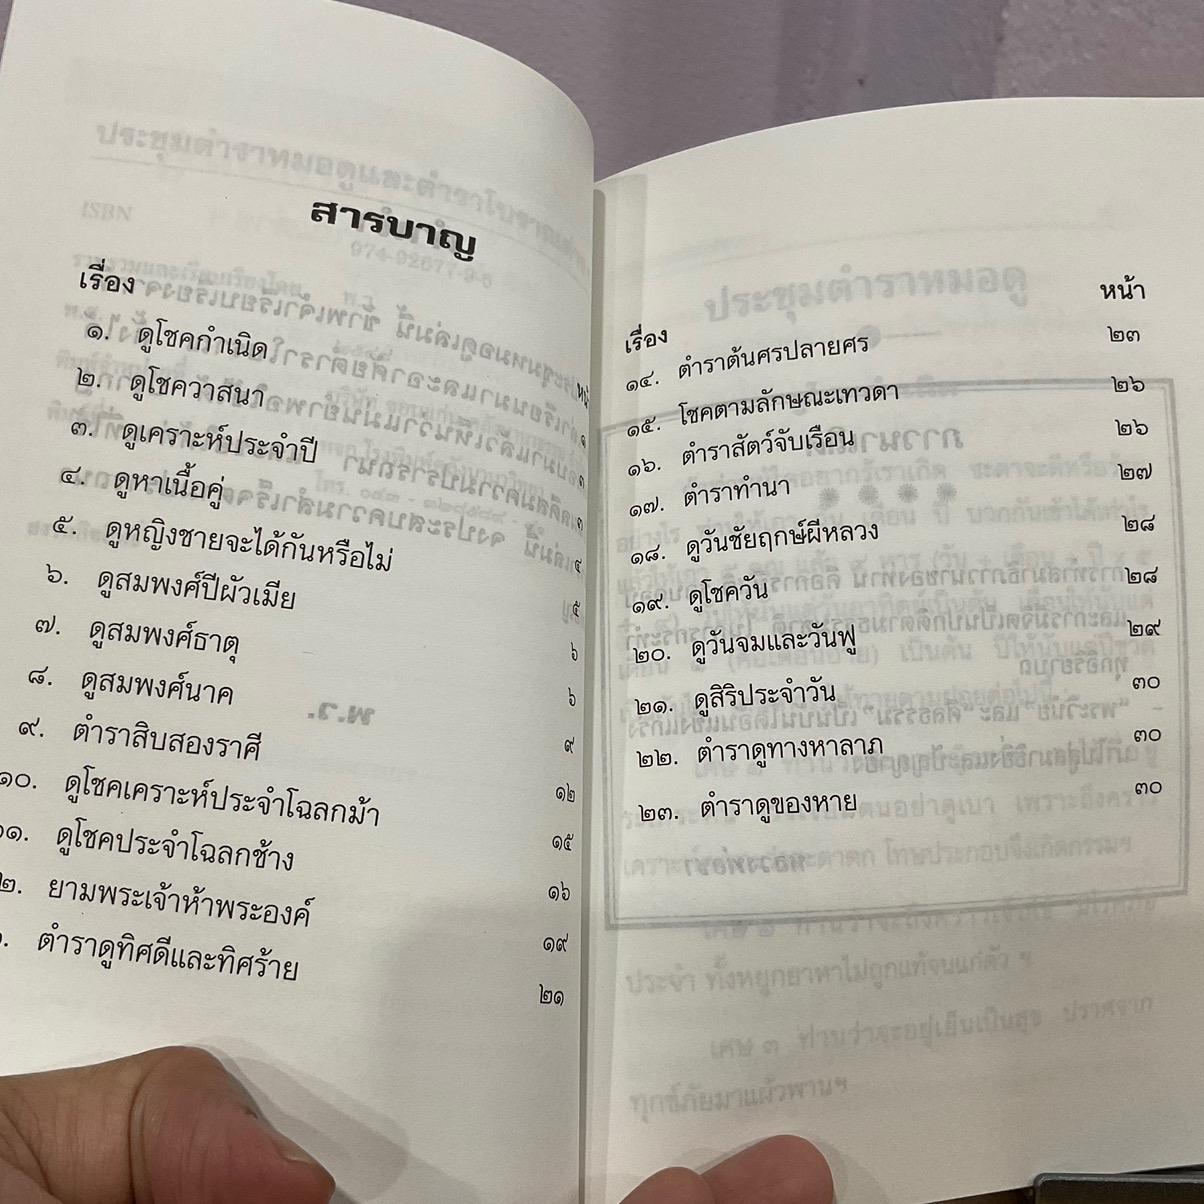 สารบาญ
เรื่อง
๑. ดูโชคกำเนิด ๑
๒. ดูโชควาสนา ๓
๓. ดูเคราะห์ประจำปี ๓
๔. ดูหาเนื้อคู่ ๔
๕. ดูหญิงชายจะได้กันหรือไม่ ๕
๖. ดูสมพงศ์ปีผัวเมีย ๖
๗. ดูสมพงศ์ธาตุ ๖
๘. ดูสมพงศ์นาค ๙
๙. ตำราสิบสองราศี ๑๒
๑๐. ดูโชคเคราะห์ประจำโฉลกม้า ๑๕
๑๑. ดูโชคประจำโฉลกช้าง ๑๖
๒. ยามพระเจ้าห้าพระองค์ ๑๙
ตำราดูทิศดีและทิศร้าย ๒๑
เรื่อง หน้า
๑๔. ตำราต้นศรปลายศร ๒๓
๑๕. โชคตามลักษณะเทวดา ๒๖
๑๖. ตำราสัตว์จับเรือน ๒๖
๑๗. ตำราทำนา ๒๗
๑๘. ดูวันชัยฤกษ์ผีหลวง ๒๘
๑๙. ดูโชควัน ๒๘
๒๐. ดูวันจมและวันฟู ๒๙
๒๑. ดูสิริประจำวัน ๓๐
๒๒. ตำราดูทางหาลาภ ๓๐
๒๓. ตำราดูของหาย ๓๐